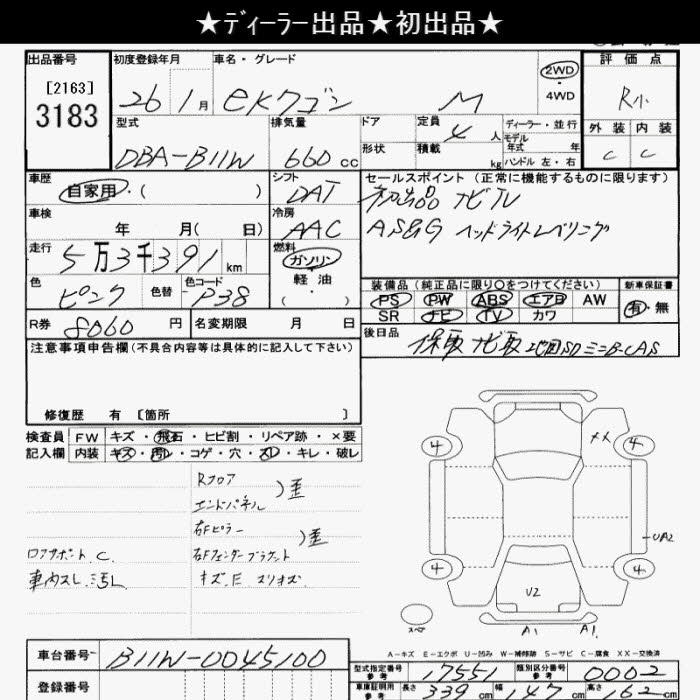 ★ディーラー出品★初出品★
出品番号 初度登録年月 車名・グレード 評価点
[2163]
3183
26 1月 eKワゴン M
2WD
・
4WD
R小
型式 排気量 ドア 定員 4人 ディーラー・並行 外装 内装
DBA-B11W 660cc 形状 積載 kg モデル年式 年 C C
ハンドル 左・右
車歴 自家用・( ) シフト DAT セールスポイント (正常に機能するものに限ります)
初出品 ナビTV
車検 年 月( 日) 冷房 AAC AS&G ヘッドライトレベリング
走行 5万3千391km 燃料 ガソリン・軽油・( )
色 ピンク 色替 色コード P38
装備品 (純正品に限り○をつけてください) 新車保証書
PS PW ABS エアB AW 有・無
SR ナビ TV カワ
R券 8060円 名変期限 月 日
後日品 保取 ナビ取 地図SD ミニB-CAS
注意事項申告欄(不具合内容等は具体的に記入して下さい)
修復歴 有 [箇所 ]
検査員 FW キズ・飛石・ヒビ割・リペア跡・×要
記入欄 内装 キズ・汚レ・コゲ・穴・スレ・キレ・破レ
Rフロア
エンドパネル )歪
右Fピラー
右Fフェンダーブラケット )歪
キズ.E スリキズ
ロアサポート C.
車内スレ.汚し
4 XX 4
UA2
4 4
U2
スペア
A1 A1
A-キズ E-エクボ U-凹み W-補修跡 S-サビ C-腐食 XX-交換済
車台番号 B11W-0045100
型式指定番号 参考 17551 類別区分番号 参考 0002
登録番号
車庫証明用 参考 長さ 339cm 幅 147cm 高さ 162cm